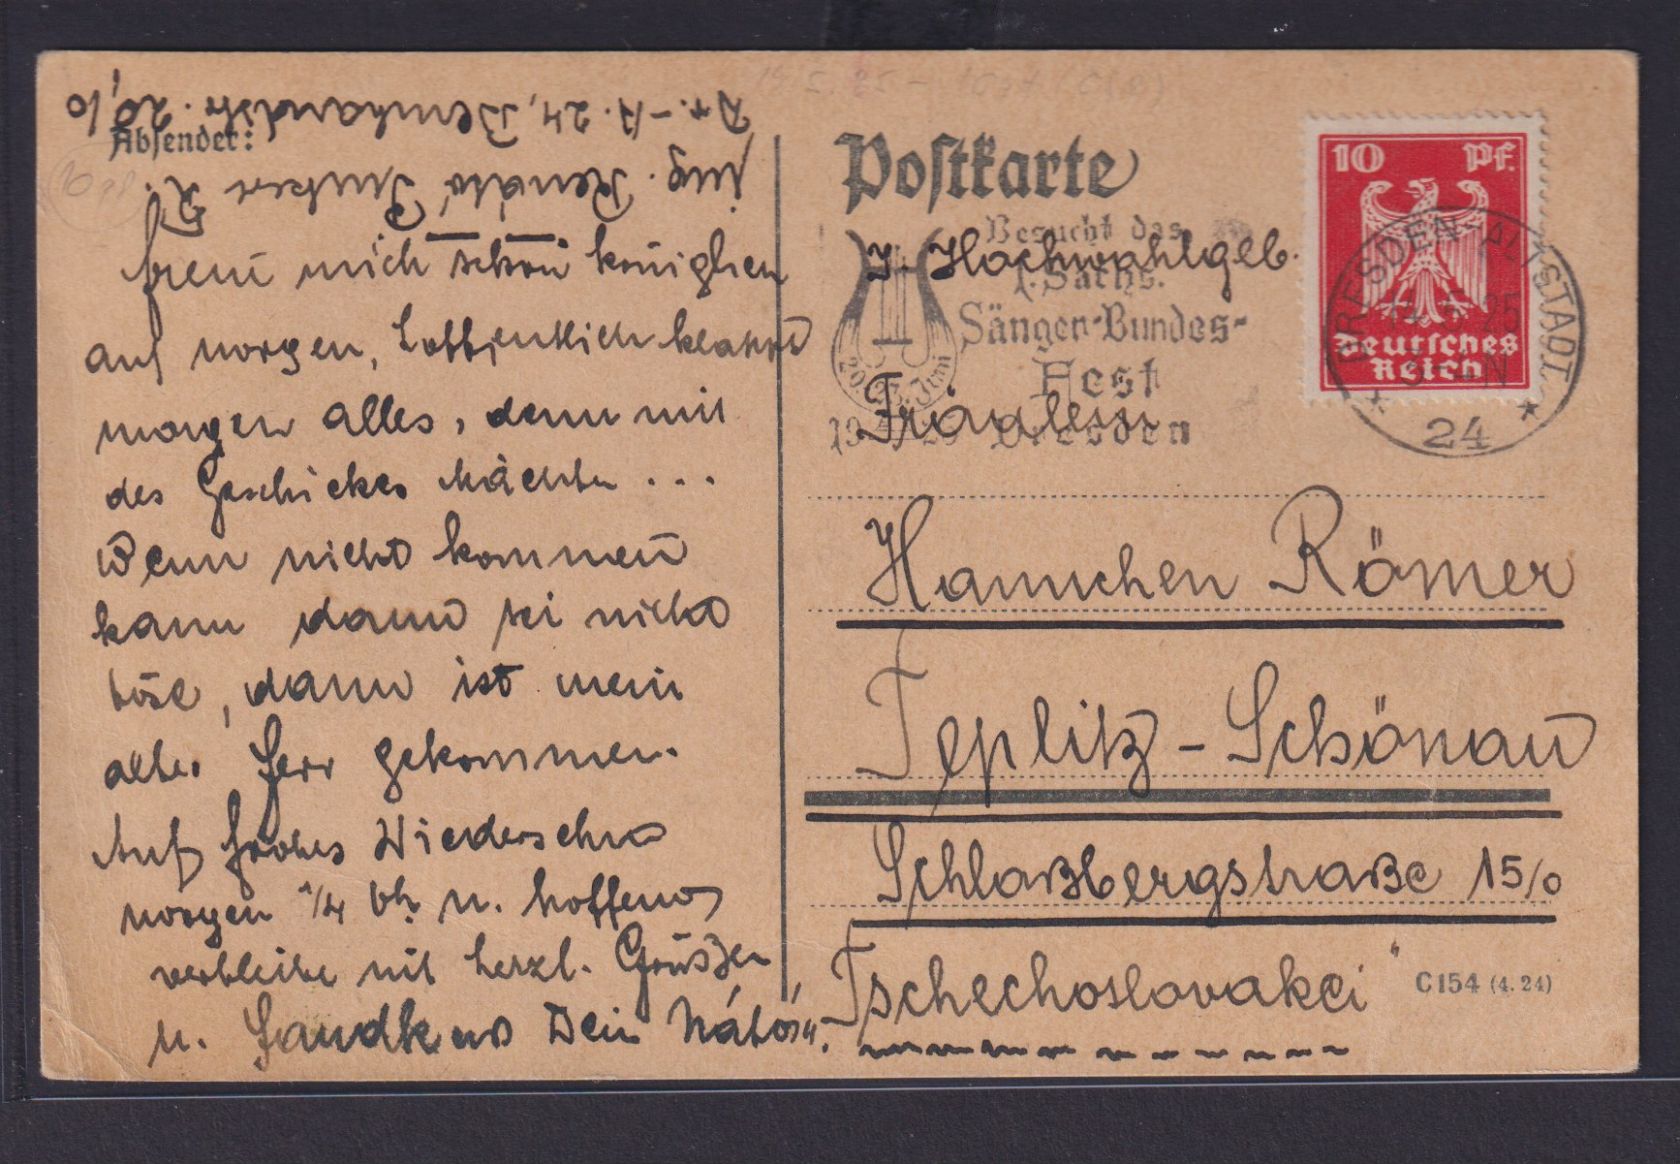 Dr.-A. 24, Bernhardstr. 20/0
Absender:
Ing. Renato
freue mich schon königlich
auf morgen, hoffentlich klappt
morgen alles, denn mit
des Geschickes Mächten ...
Wenn nicht kommen
kann dann sei nicht
böse, dann ist mein
alter Herr gekommen.
Auf frohes Wiedersehn
morgen 1/4 u. hoffend
verbleibe mit herzl. Grüssen
u. Handkuss Dein
Postkarte
Besucht das
1. Sächs.
Sänger-Bundes-
Fest
20.-23. Juni
Dresden
I. Hochwohlgeb.
Fräulein
Hannchen Römer
Teplitz-Schönau
Schloßbergstraße 15/0
Tschechoslovakei
C 154 (4. 24)
10 Pf.
Deutsches
Reich
DRESDEN-ALTSTADT
25
24